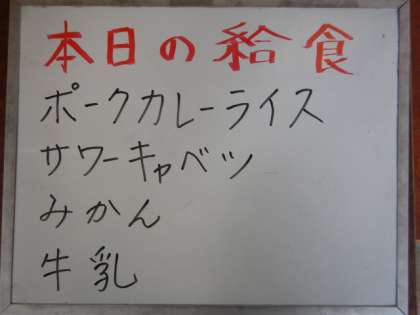 本日の給食
ポークカレーライス
サワーキャベツ
みかん
牛乳